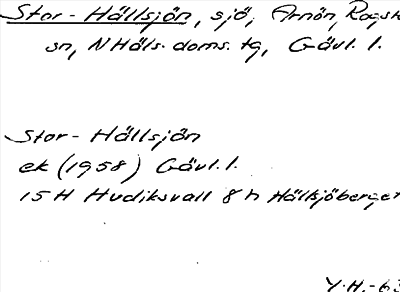 Stor-Hällsjön, sjö, Arnön, Rogst
sn, NHäls. doms. tg, Gävl. l.
Stor-Hällsjön
ek (1958) Gävl. l.
15H Hudiksvall 8h Hällsjöberget
Y.H.-63